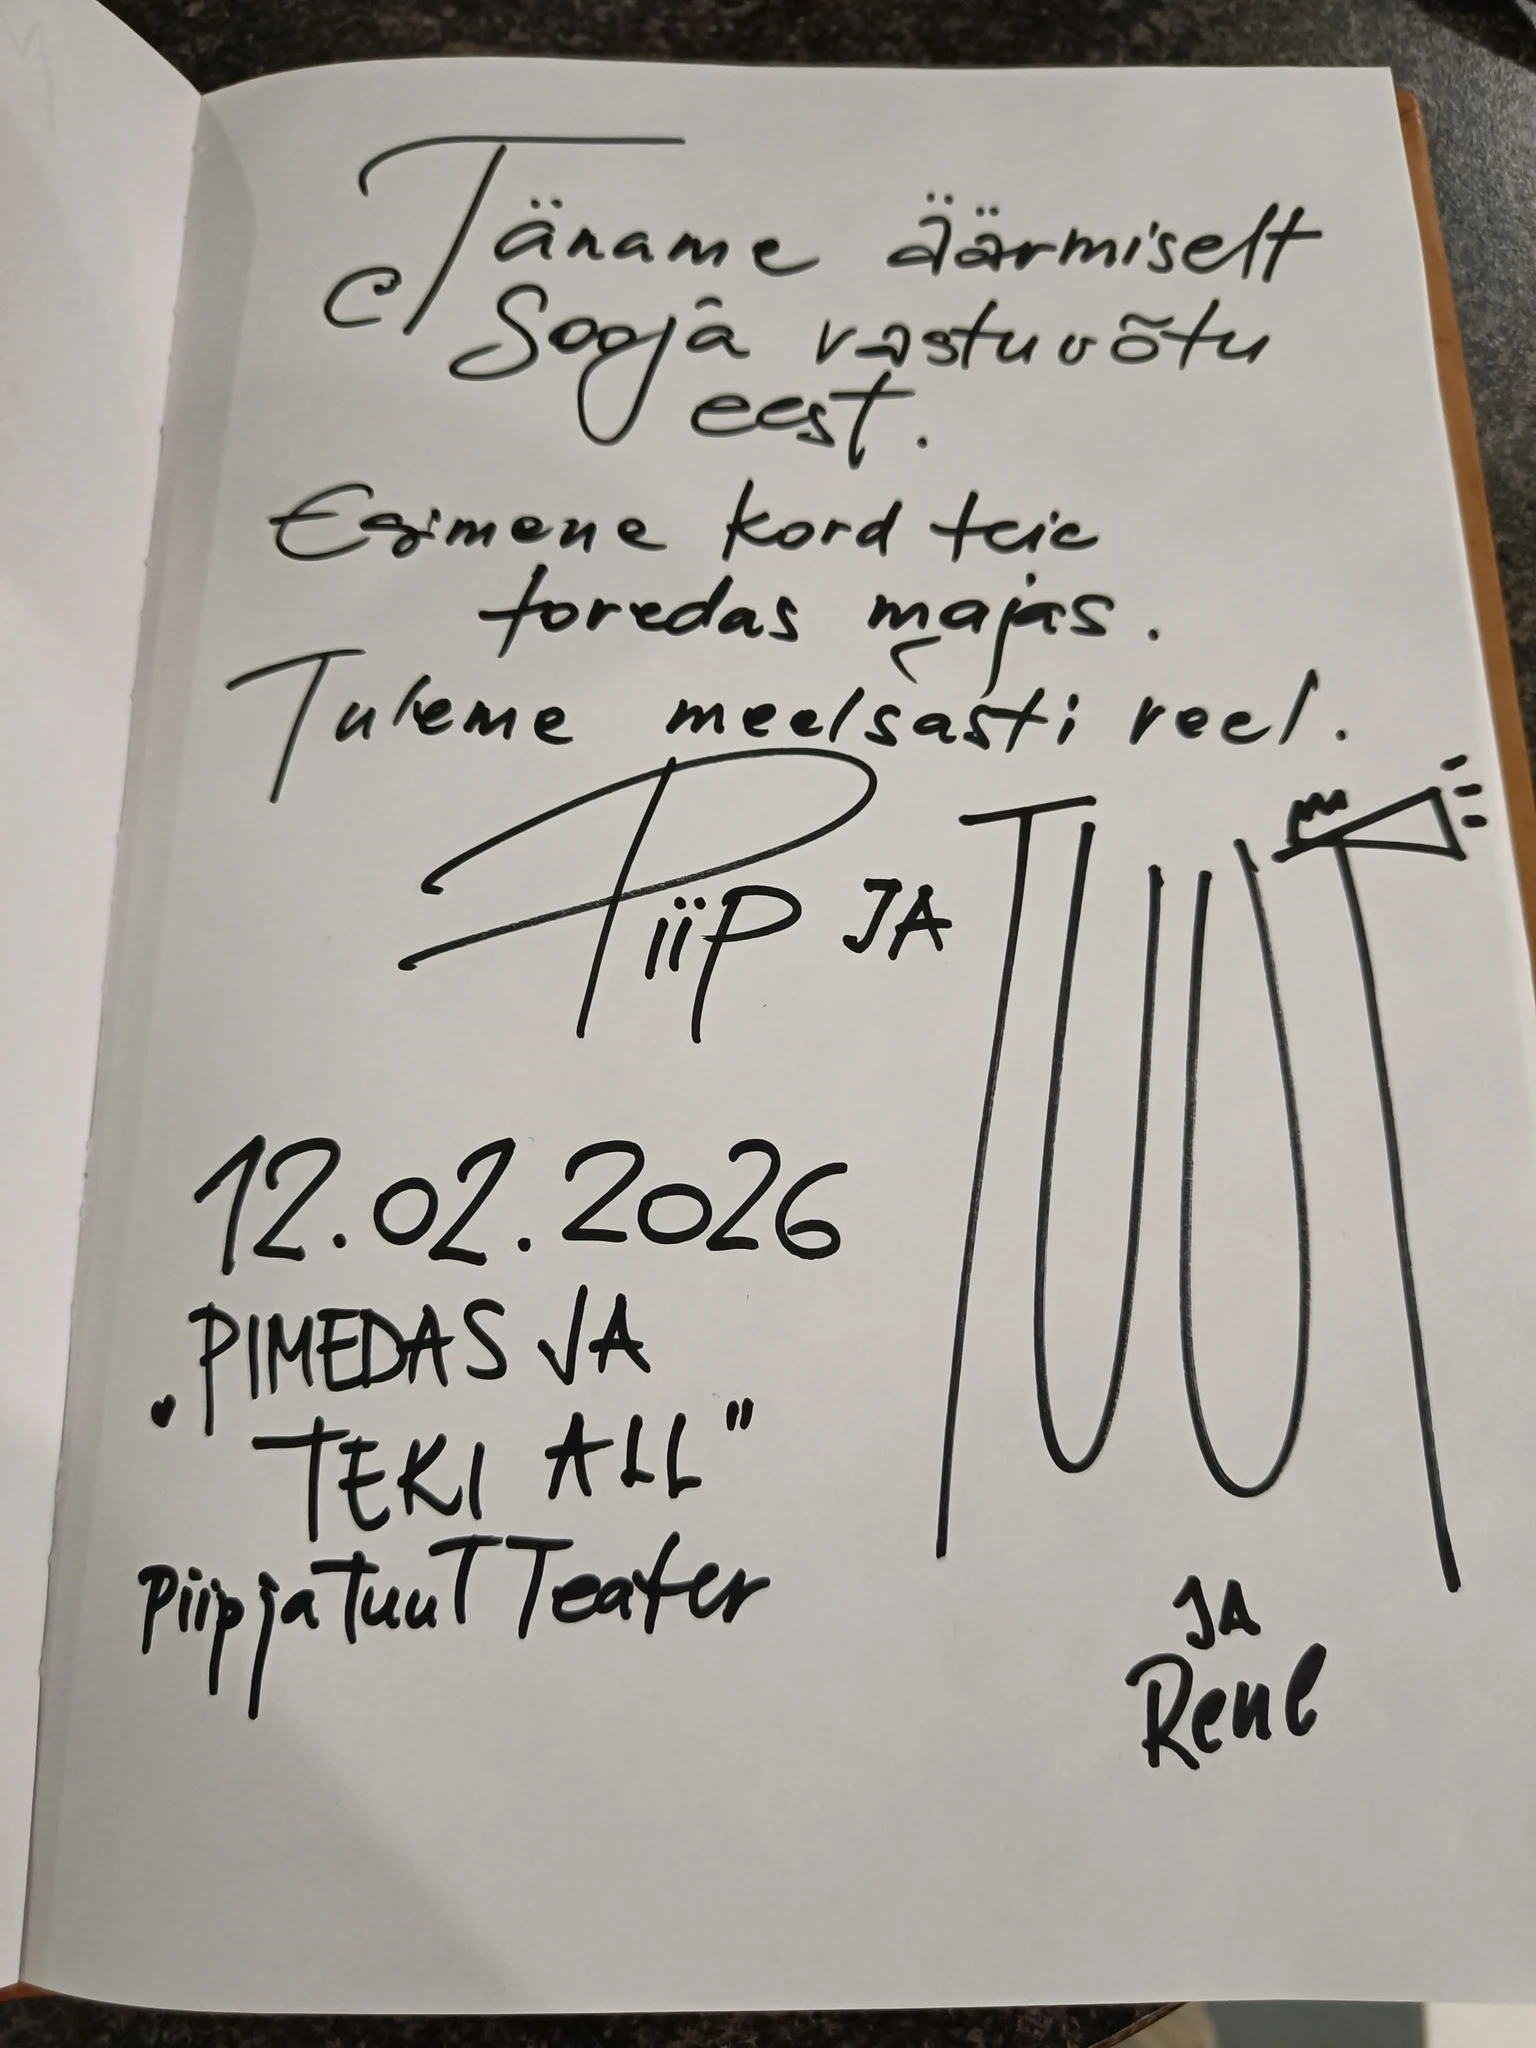 Täname äärmiselt
sooja vastuvõtu
eest.
Esimene kord teie
toredas majas.
Tuleme meelsasti veel.
Piip JA TUUT
12.02.2026
"PIMEDAS JA
TEKI ALL"
Piip ja Tuut Teater
JA
Rene